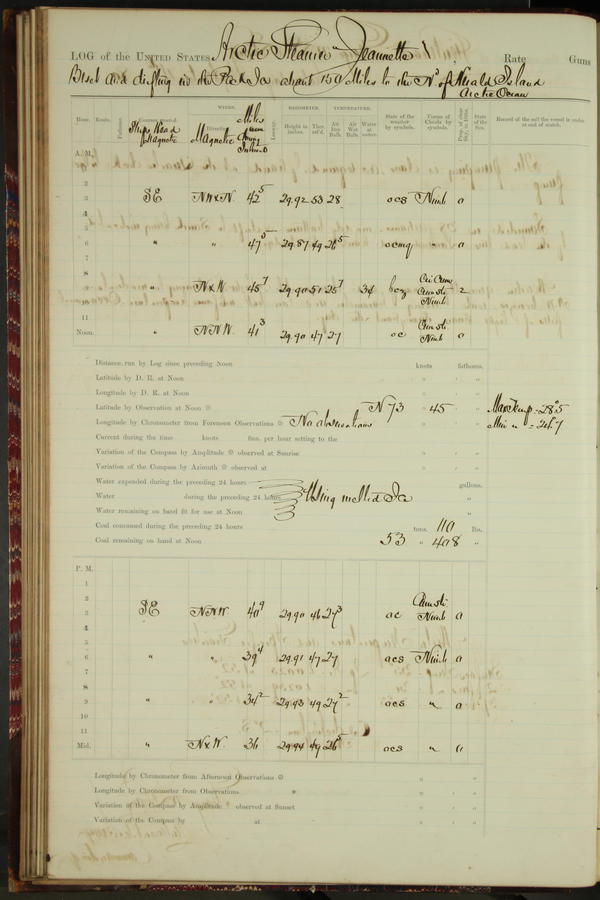 LOG of the UNITED STATES Arctic Steamer "Jeannette" Rate Guns
Beset and drifting in the Pack Ice about 150 Miles to the Nd of Herald Island
Arctic Ocean
Hour. Knots. Fathoms. Courses steered. Ships Head Magnetic WINDS. Direction. Magnetic Miles Leeway. BAROMETER. Height in inches. Ther. att'd. TEMPERATURE. Air Dry Bulb. Air Wet Bulb. Water at surface. State of the weather by symbols. Forms of Clouds by symbols. Prop. of clear Sky, in 10ths. State of the Sea. Record of the sail the vessel is under at end of watch.
A. M.
2
3 SE NWxN 42 5 29.92 53 28 ocs Nimb 0
5
6 " " 47 5 29.87 49 26 5 ocmq " 0
8 Cir Cum
9 " NxW 45 7 29.90 51 25 7 34 bcz Cum sti 2
Nimb
11 Cum sti
Noon. " NNW 41 3 29.90 47 27 oc Nimb 0
Distance run by Log since preceding Noon knots fathoms.
Latitude by D. R. at Noon
Longitude by D. R. at Noon
Latitude by Observation at Noon N 73 45 Max Temp = 28°5
Longitude by Chronometer from Forenoon Observations No observations Min " = 24°7
Current during the time knots fms. per hour setting to the
Variation of the Compass by Amplitude observed at Sunrise
Variation of the Compass by Azimuth observed at
Water expended during the preceding 24 hours gallons.
Water during the preceding 24 hours Using melted Ice "
Water remaining on hand fit for use at Noon "
Coal consumed during the preceding 24 hours tons. 110 lbs.
Coal remaining on hand at Noon 53 " 408 "
P. M.
1
2 Cum sti
3 SE NNW 40 9 29.90 46 27 3 oc Nimb 0
4
5
6 " " 39 4 29.91 47 27 ocs Nimb 0
7
8
9 " " 34 2 29.93 49 27 2 ocs " 0
10
11
Mid. " NxW. 36 29.94 49 26 5 ocs " 0
Longitude by Chronometer from Afternoon Observations
Longitude by Chronometer from Observations
Variation of the Compass by Amplitude observed at Sunset
Variation of the Compass by at